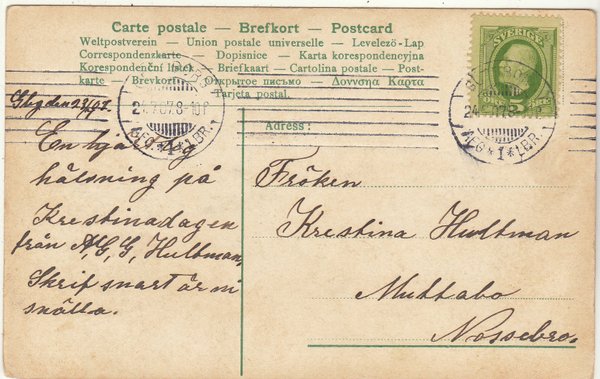 Carte postale – Brefkort – Postcard
Weltpostverein – Union postale universelle – Levelező-Lap
Correspondenzkarte – Dopisnice – Karta korespondencyjna
Korespondenční lístek – Briefkaart – Cartolina postale – Post-
karte – Brevkort – Открытое письмо – Δοννσηα Καρτα
Tarjeta postal.
SVERIGE
5
ÖRE
24.7.07.8-10 F
1 LBR.
Adress:
hälsning på
Krestinadagen
från A, G, G, Hultman,
Skrif snart är ni
snälla.
Fröken
Krestina Hultman
Muttabo
Nossebro.